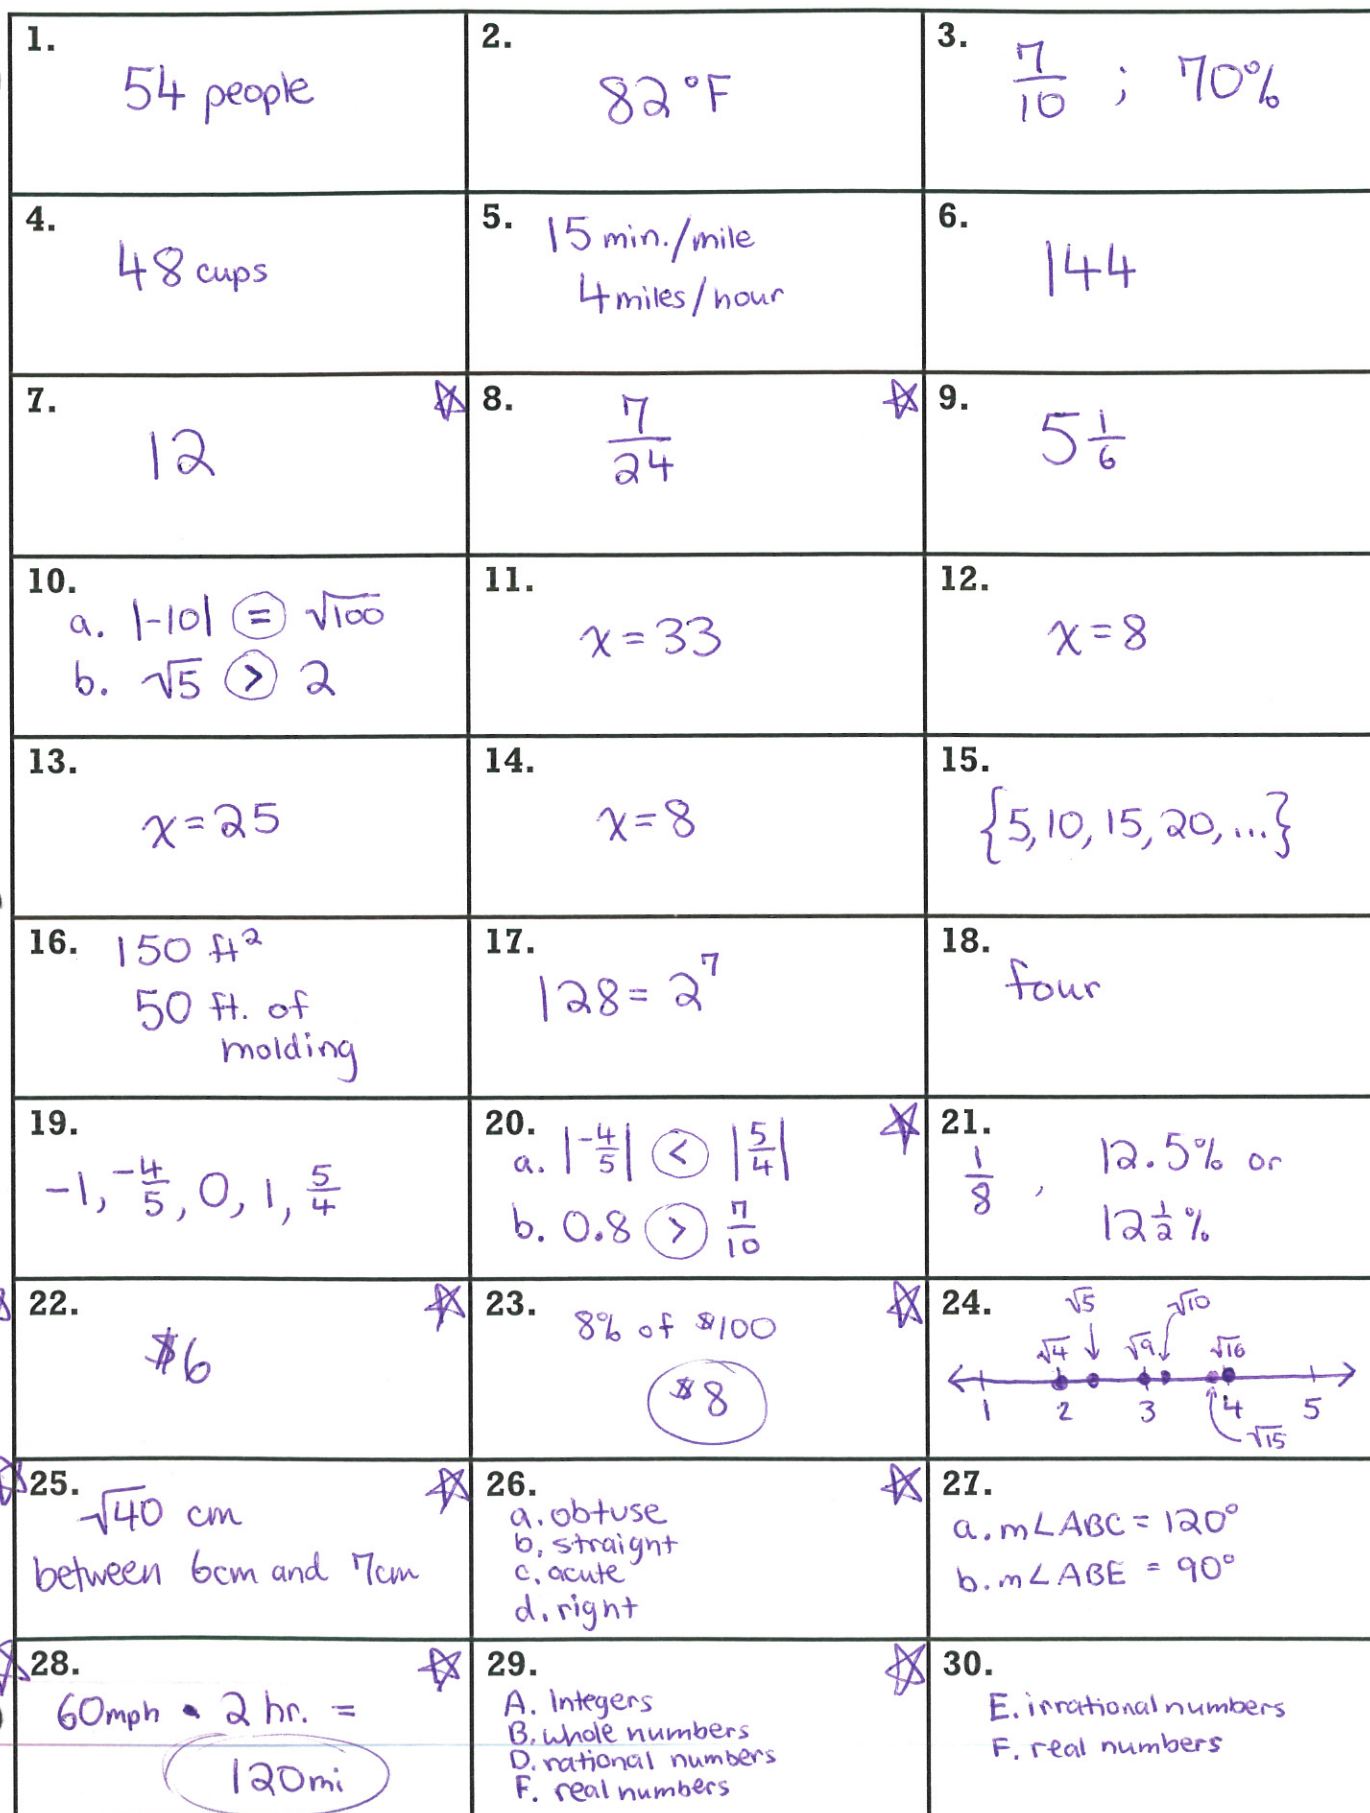 1.
54 people
2.
82 °F
3.
7/10 ; 70%
4.
48 cups
5.
15 min./mile
4 miles/hour
6.
144
7.
12
8.
7/24
9.
5 1/6
10.
a. |-10| = √100
b. √5 > 2
11.
x = 33
12.
x = 8
13.
x = 25
14.
x = 8
15.
{5, 10, 15, 20, ...}
16.
150 ft²
50 ft. of
molding
17.
128 = 2⁷
18.
four
19.
-1, -4/5, 0, 1, 5/4
20.
a. |-4/5| < |5/4|
b. 0.8 > 7/10
21.
1/8 , 12.5% or
12 1/2 %
22.
$6
23.
8% of $100
$8
24.
√5 √10
√4 √9 √16
1 2 3 4 5
√15
25.
√40 cm
between 6cm and 7cm
26.
a. obtuse
b. straight
c. acute
d. right
27.
a. m∠ABC = 120°
b. m∠ABE = 90°
28.
60mph • 2 hr. =
120mi
29.
A. Integers
B. whole numbers
D. rational numbers
F. real numbers
30.
E. irrational numbers
F. real numbers